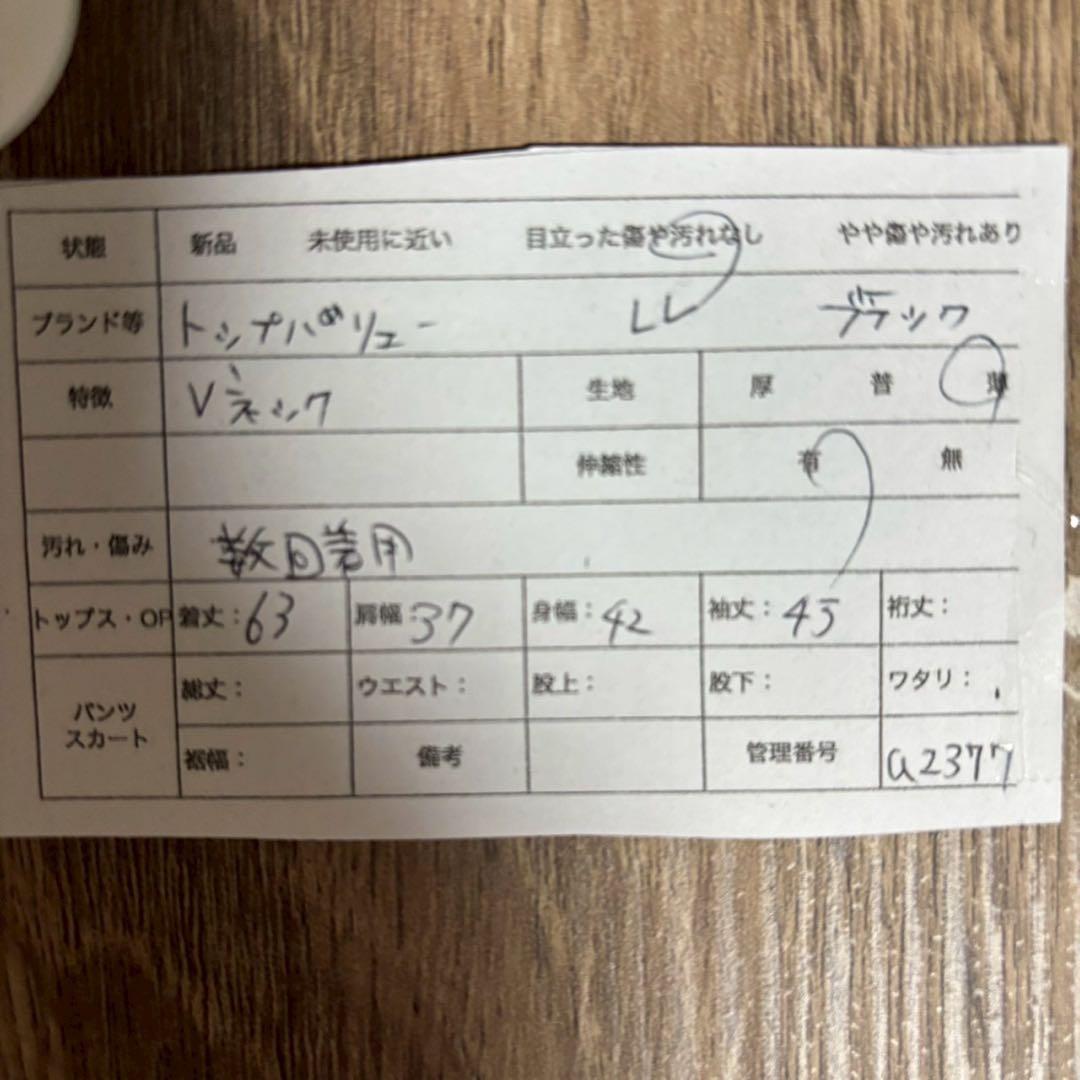 状態 新品 未使用に近い 目立った傷や汚れなし やや傷や汚れあり
ブランド等 トップバリュー LL ブラック
特徴 Vネック 生地 厚 普 薄
伸縮性 有 無
汚れ・傷み 数回着用
トップス・OP 着丈:63 肩幅:37 身幅:42 袖丈:45 裄丈:
パンツ スカート 総丈: ウエスト: 股上: 股下: ワタリ:
裾幅: 備考 管理番号 a2377